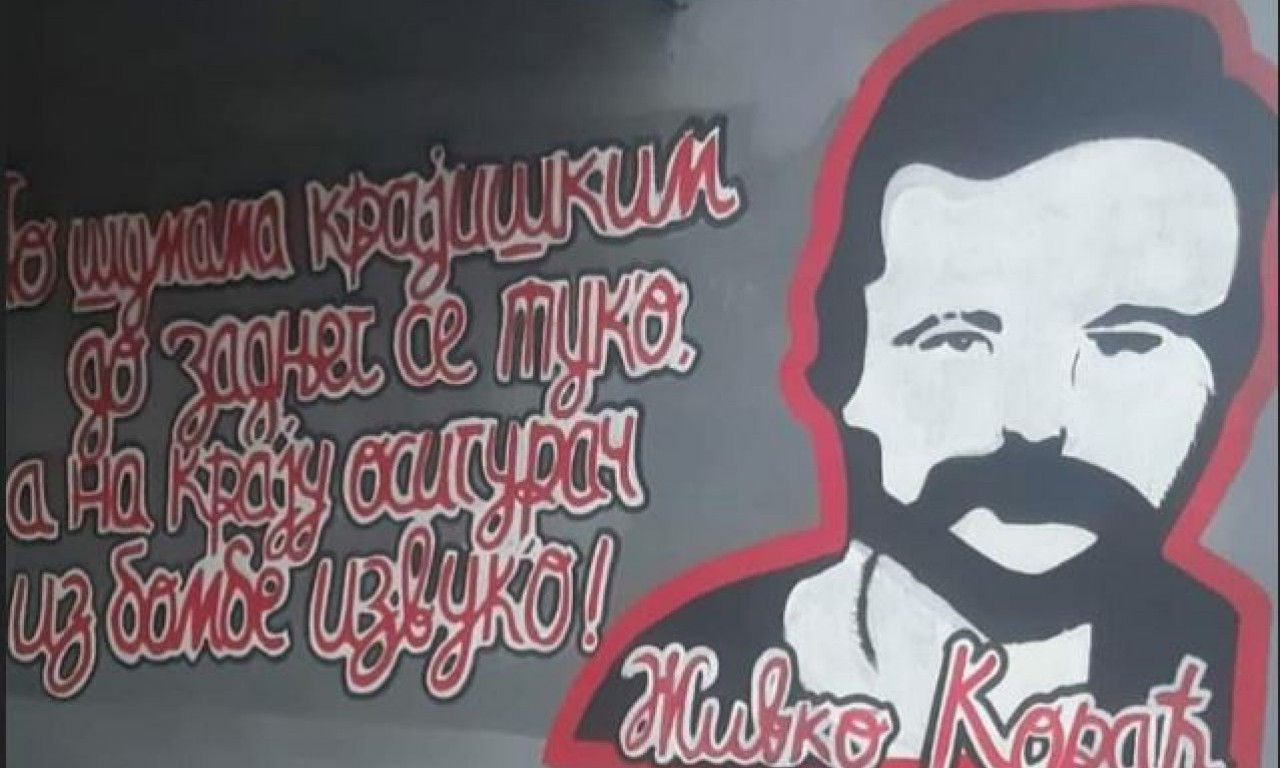 По шумама крајишким
до задњег се туко.
а на крају осигурач
из бомбе извуко!
Живко Кораћ